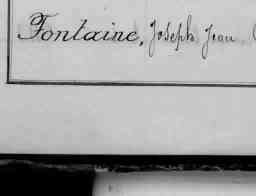 Fontaine, Joseph Jean